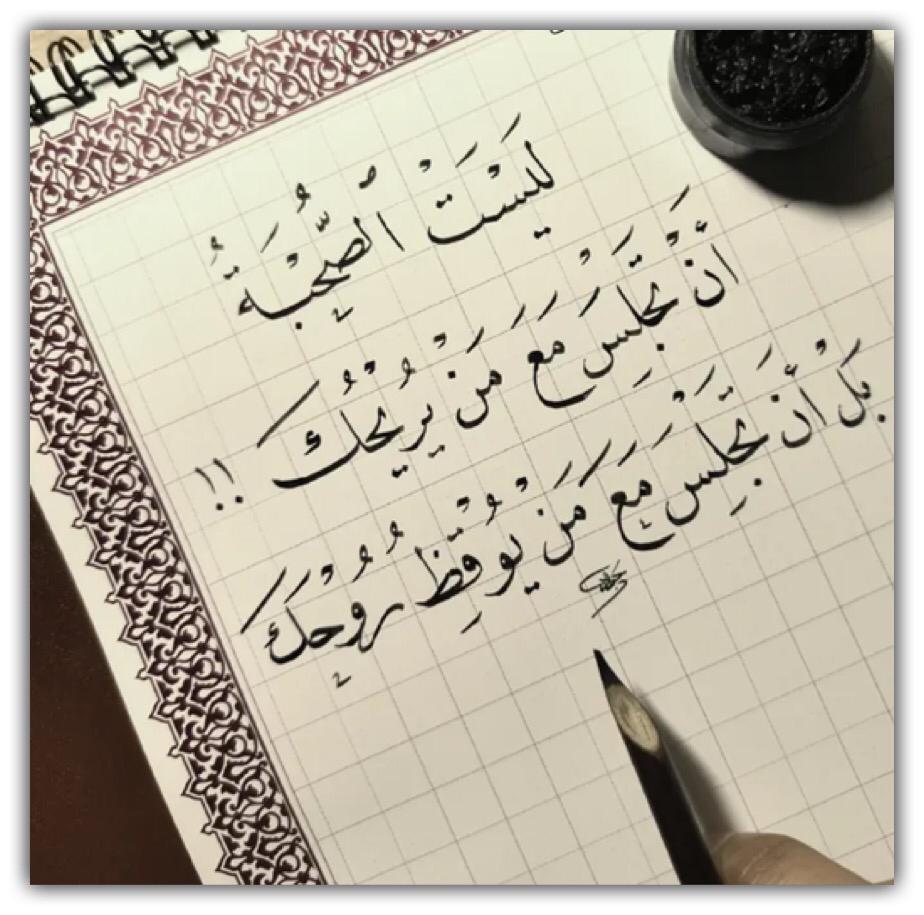 لَيْسَتْ الصُّحْبَةُ
أَنْ تَجْلِسَ مَعَ مَنْ يُرِيْحُكَ !!
بَلْ أَنْ تَجْلِسَ مَعَ مَنْ يُوْقِظُ رُوْحَكَ